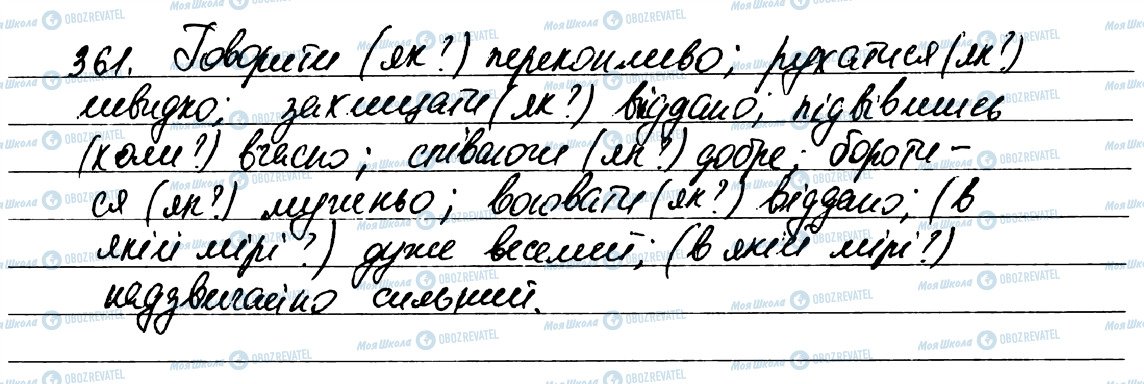 361. Говорити (як?) переконливо; рухатися (як?)
швидко; захищати (як?) віддано; підвівшись
(коли?) вчасно; співаючи (як?) добре; бороти-
ся (як?) мужньо; воювати (як?) віддано; (в
якій мірі?) дуже веселий; (в якій мірі?)
надзвичайно сильний.